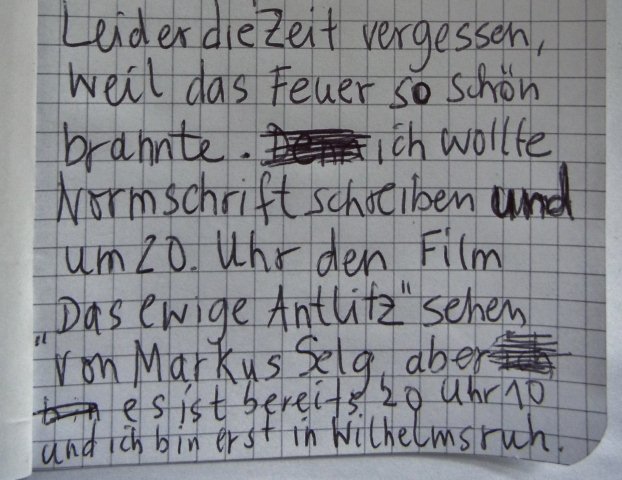 Leider die Zeit vergessen,
weil das Feuer so schön
brannte. ich wollte
Normschrift schreiben und
um 20. Uhr den Film
"Das ewige Antlitz" sehen
von Markus Selg, aber
es ist bereits 20 Uhr 10
und ich bin erst in Wilhelmsruh.